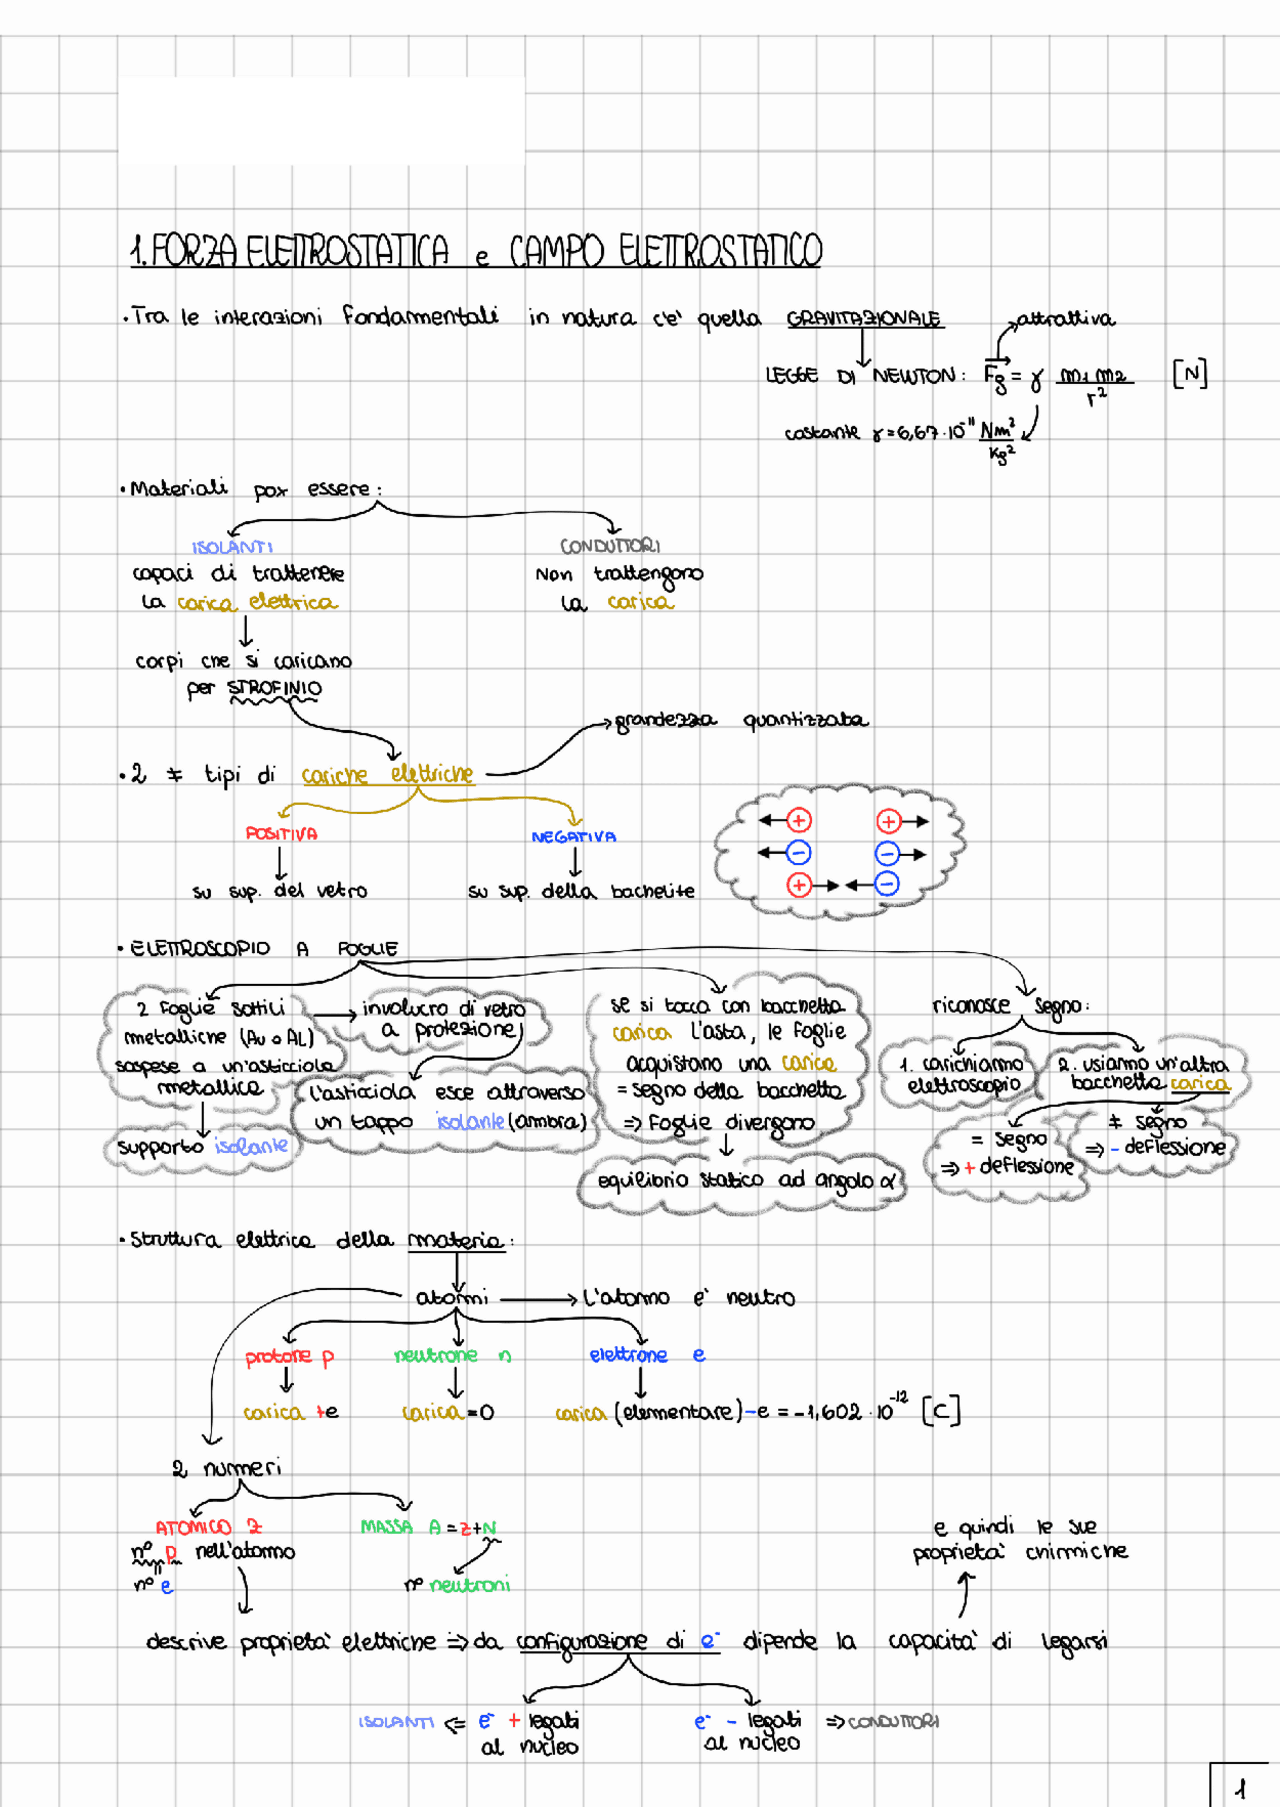 1. FORZA ELETTROSTATICA e CAMPO ELETTROSTATICO
• Tra le interazioni fondammentali in natura c'e' quella GRAVITAZIONALE
attrattiva
LEGGE DI NEWTON: Fg = γ m1 m2 / r² [N]
costante γ = 6,67 · 10⁻¹¹ Nm² / kg²
• Materiali pox essere:
ISOLANTI
capaci di trattenere
la carica elettrica
CONDUTTORI
Non trattengono
la carica
corpi che si caricano
per STROFINIO
grandezza quantizzata
• 2 ≠ tipi di cariche elettriche
POSITIVA
NEGATIVA
su sup. del vetro
su sup. della bachelite
+ +
- -
+ -
• ELETTROSCOPIO A FOGLIE
2 foglie sottili
metalliche (Au o AL)
sospese a un'asticciola
metallica
supporto isolante
involucro di vetro
a protezione
l'asticciola esce attraverso
un tappo isolante (ambra)
se si tocca con bacchetta
carica l'asta, le foglie
acquistano una carica
= segno della bacchetta
⇒ foglie divergono
equilibrio statico ad angolo α
riconosce segno:
1. carichiamo
elettroscopio
2. usiamo un'altra
bacchetta carica
= segno
⇒ + deflessione
≠ segno
⇒ - deflessione
• Struttura elettrica della materia:
atomi → l'atomo e' neutro
protone p
neutrone n
elettrone e
carica +e
carica = 0
carica (elementare) -e = -1,602 · 10⁻¹² [C]
2 numeri
ATOMICO Z
n° p nell'atomo
=
n° e
MASSA A = Z+N
n° neutroni
e quindi le sue
proprieta' chimiche
descrive proprieta' elettriche ⇒ da configurazione di e⁻ dipende la capacita' di legarsi
ISOLANTI ⇐ e⁻ + legati
al nucleo
e⁻ - legati ⇒ CONDUTTORI
al nucleo
1